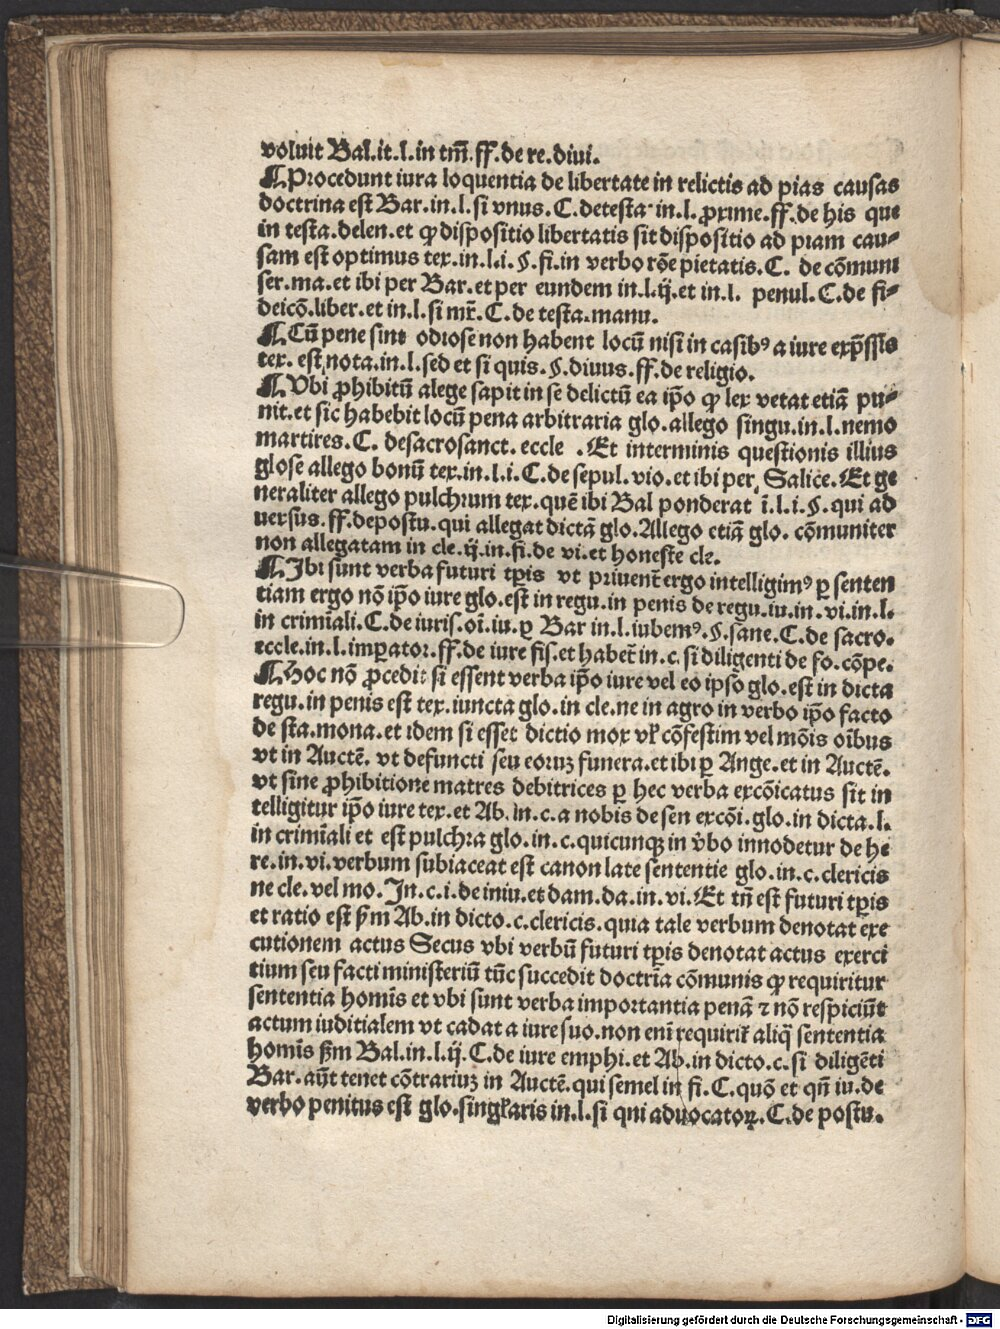 voluit Bal.it.l.in tm̄.ff.de re.diui.
¶ Procedunt iura loquentia de libertate in relictis ad pias causas
doctrina est Bar.in.l.si vnus.C.detesta.in.l.ꝓxime.ff.de his que
in testa.delen.et ꝙ dispositio libertatis sit dispositio ad piam cau⸗
sam est optimus tex.in.l.i.§.fi.in verbo rōe pietatis.C. de cōmuni
ser.ma.et ibi per Bar.et per eundem in.l.ij.et in.l. penul.C.de fi⸗
deicō.liber.et in.l.si mr̄.C.de testa.manu.
¶ Cū pene sint odiose non habent locū nisi in casibꝰ a iure exp̄ssis
tex. est nota.in.l.sed et si quis.§.diuus.ff.de religio.
¶ Vbi ꝓhibitū alege sapit in se delictū ea ip̄o ꝙ lex vetat etiā pu⸗
nit.et sic habebit locū pena arbitraria glo.allego singu.in.l.nemo
martires.C. desacrosanct.eccle .Et interminis questionis illius
glose allego bonū tex.in.l.i.C.de sepul.vio.et ibi per Salice.Et ge
neraliter allego pulchrum tex.quē ibi Bal ponderat ī.l.i.§.qui ad
uersus.ff.depostu.qui allegat dictā glo.Allego etiā glo. cōmuniter
non allegatam in cle.ij.in.fi.de vi.et honeste cle.
¶ Ibi sunt verba futuri tp̄is vt priuent̄ ergo intelligimꝰ ꝑ senten
tiam ergo nō ip̄o iure glo.est in regu.in penis de regu.iu.in.vi.in.l.
in crimīali.C.de iuris.oī.iu.ꝑ Bar in.l.iubemꝰ.§.sane.C.de sacro.
eccle.in.l.imꝑator.ff.de iure fis.et habet̄ in.c.si diligenti de fo.cōpe.
¶ Hoc nō ꝓcedit si essent verba ip̄o iure vel eo ipso glo.est in dicta
regu.in penis est tex.iuncta glo.in cle.ne in agro in verbo ip̄o facto
de sta.mona.et idem si esset dictio mox vl̄ cōfestim vel mōis oībus
vt in Auctē. vt defuncti seu eoruꝫ funera.et ibi ꝑ Ange.et in Auctē.
vt sine ꝓhibitione matres debitrices ꝑ hec verba excōicatus sit in
telligitur ip̄o iure tex.et Ab.in.c.a nobis de sen excōi.glo.in dicta.l.
in crimīali et est pulchra glo.in.c.quicunqꝫ in v̄bo innodetur de he
re.in.vi.verbum subiaceat est canon late sententie glo.in.c.clericis
ne cle.vel mo.In.c.i.de iniu.et dam.da.in.vi.Et tn̄ est futuri tp̄is
et ratio est ẜm Ab.in dicto.c.clericis.quia tale verbum denotat exe
cutionem actus Secus vbi verbū futuri tp̄is denotat actus exerci
tium seu facti ministeriū tūc succedit doctrīa cōmunis ꝙ requiritur
sententia homīs et vbi sunt verba importantia penā ⁊ nō respiciūt
actum iuditialem vt cadat a iure suo.non enī requirit̄ aliq̄ sententia
homīs ẜm Bal.in.l.ij.C.de iure emphi.et Ab.in dicto.c.si diligēti
Bar.aūt tenet cōtrariuꝫ in Auctē.qui semel in fi.C.quō et qn̄ iu.de
verbo penitus est glo.singl̄aris in.l.si qui aduocatoꝝ.C.de postu.
Digitalisierung gefördert durch die Deutsche Forschungsgemeinschaft - DFG